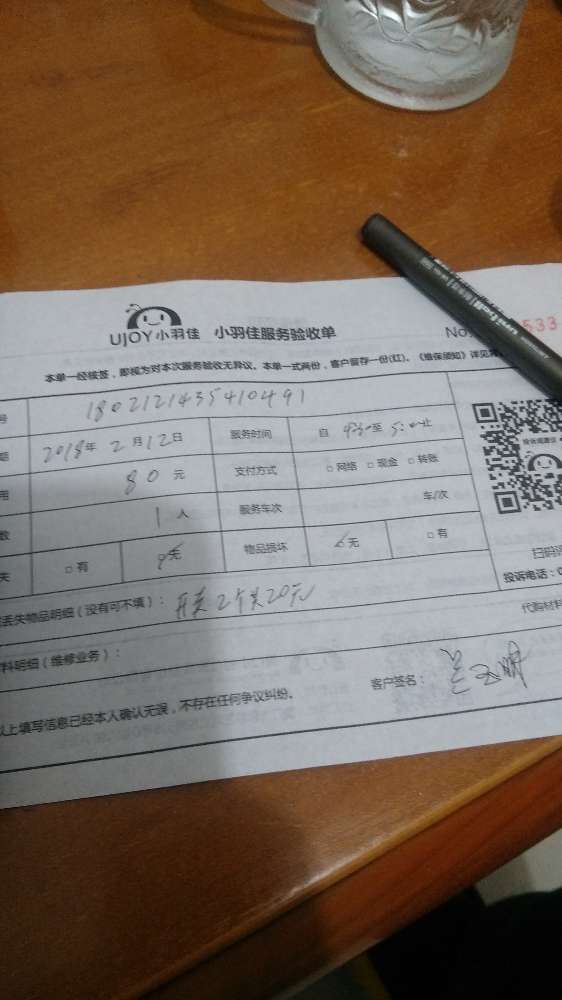 UJOY小羽佳 小羽佳服务验收单
No 533
本单一经核签,即视为对本次服务验收无异议。本单一式两份,客户留存一份(红)。《维保须知》详见背
号 1802121435410491
期 2018年 2月12日 服务时间 自 4:30至 5:00止
用 80元 支付方式 □网络 □现金 □转账
数 1人 服务车次 车/次
失 □有 无 物品损坏 无 □有
扫码
投诉电话:0
丢失物品明细(没有可不填): 开关2个共20元
代购材料
料明细(维修业务):
以上填写信息已经本人确认无误,不存在任何争议纠纷。 客户签名: